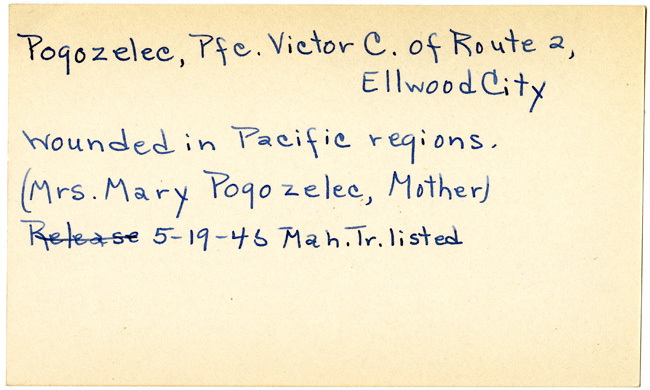 Pogozelec, Pfc. Victor C. of Route 2,
Ellwood City
Wounded in Pacific regions.
(Mrs. Mary Pogozelec, Mother)
Release 5-19-45 Mah. Tr. listed